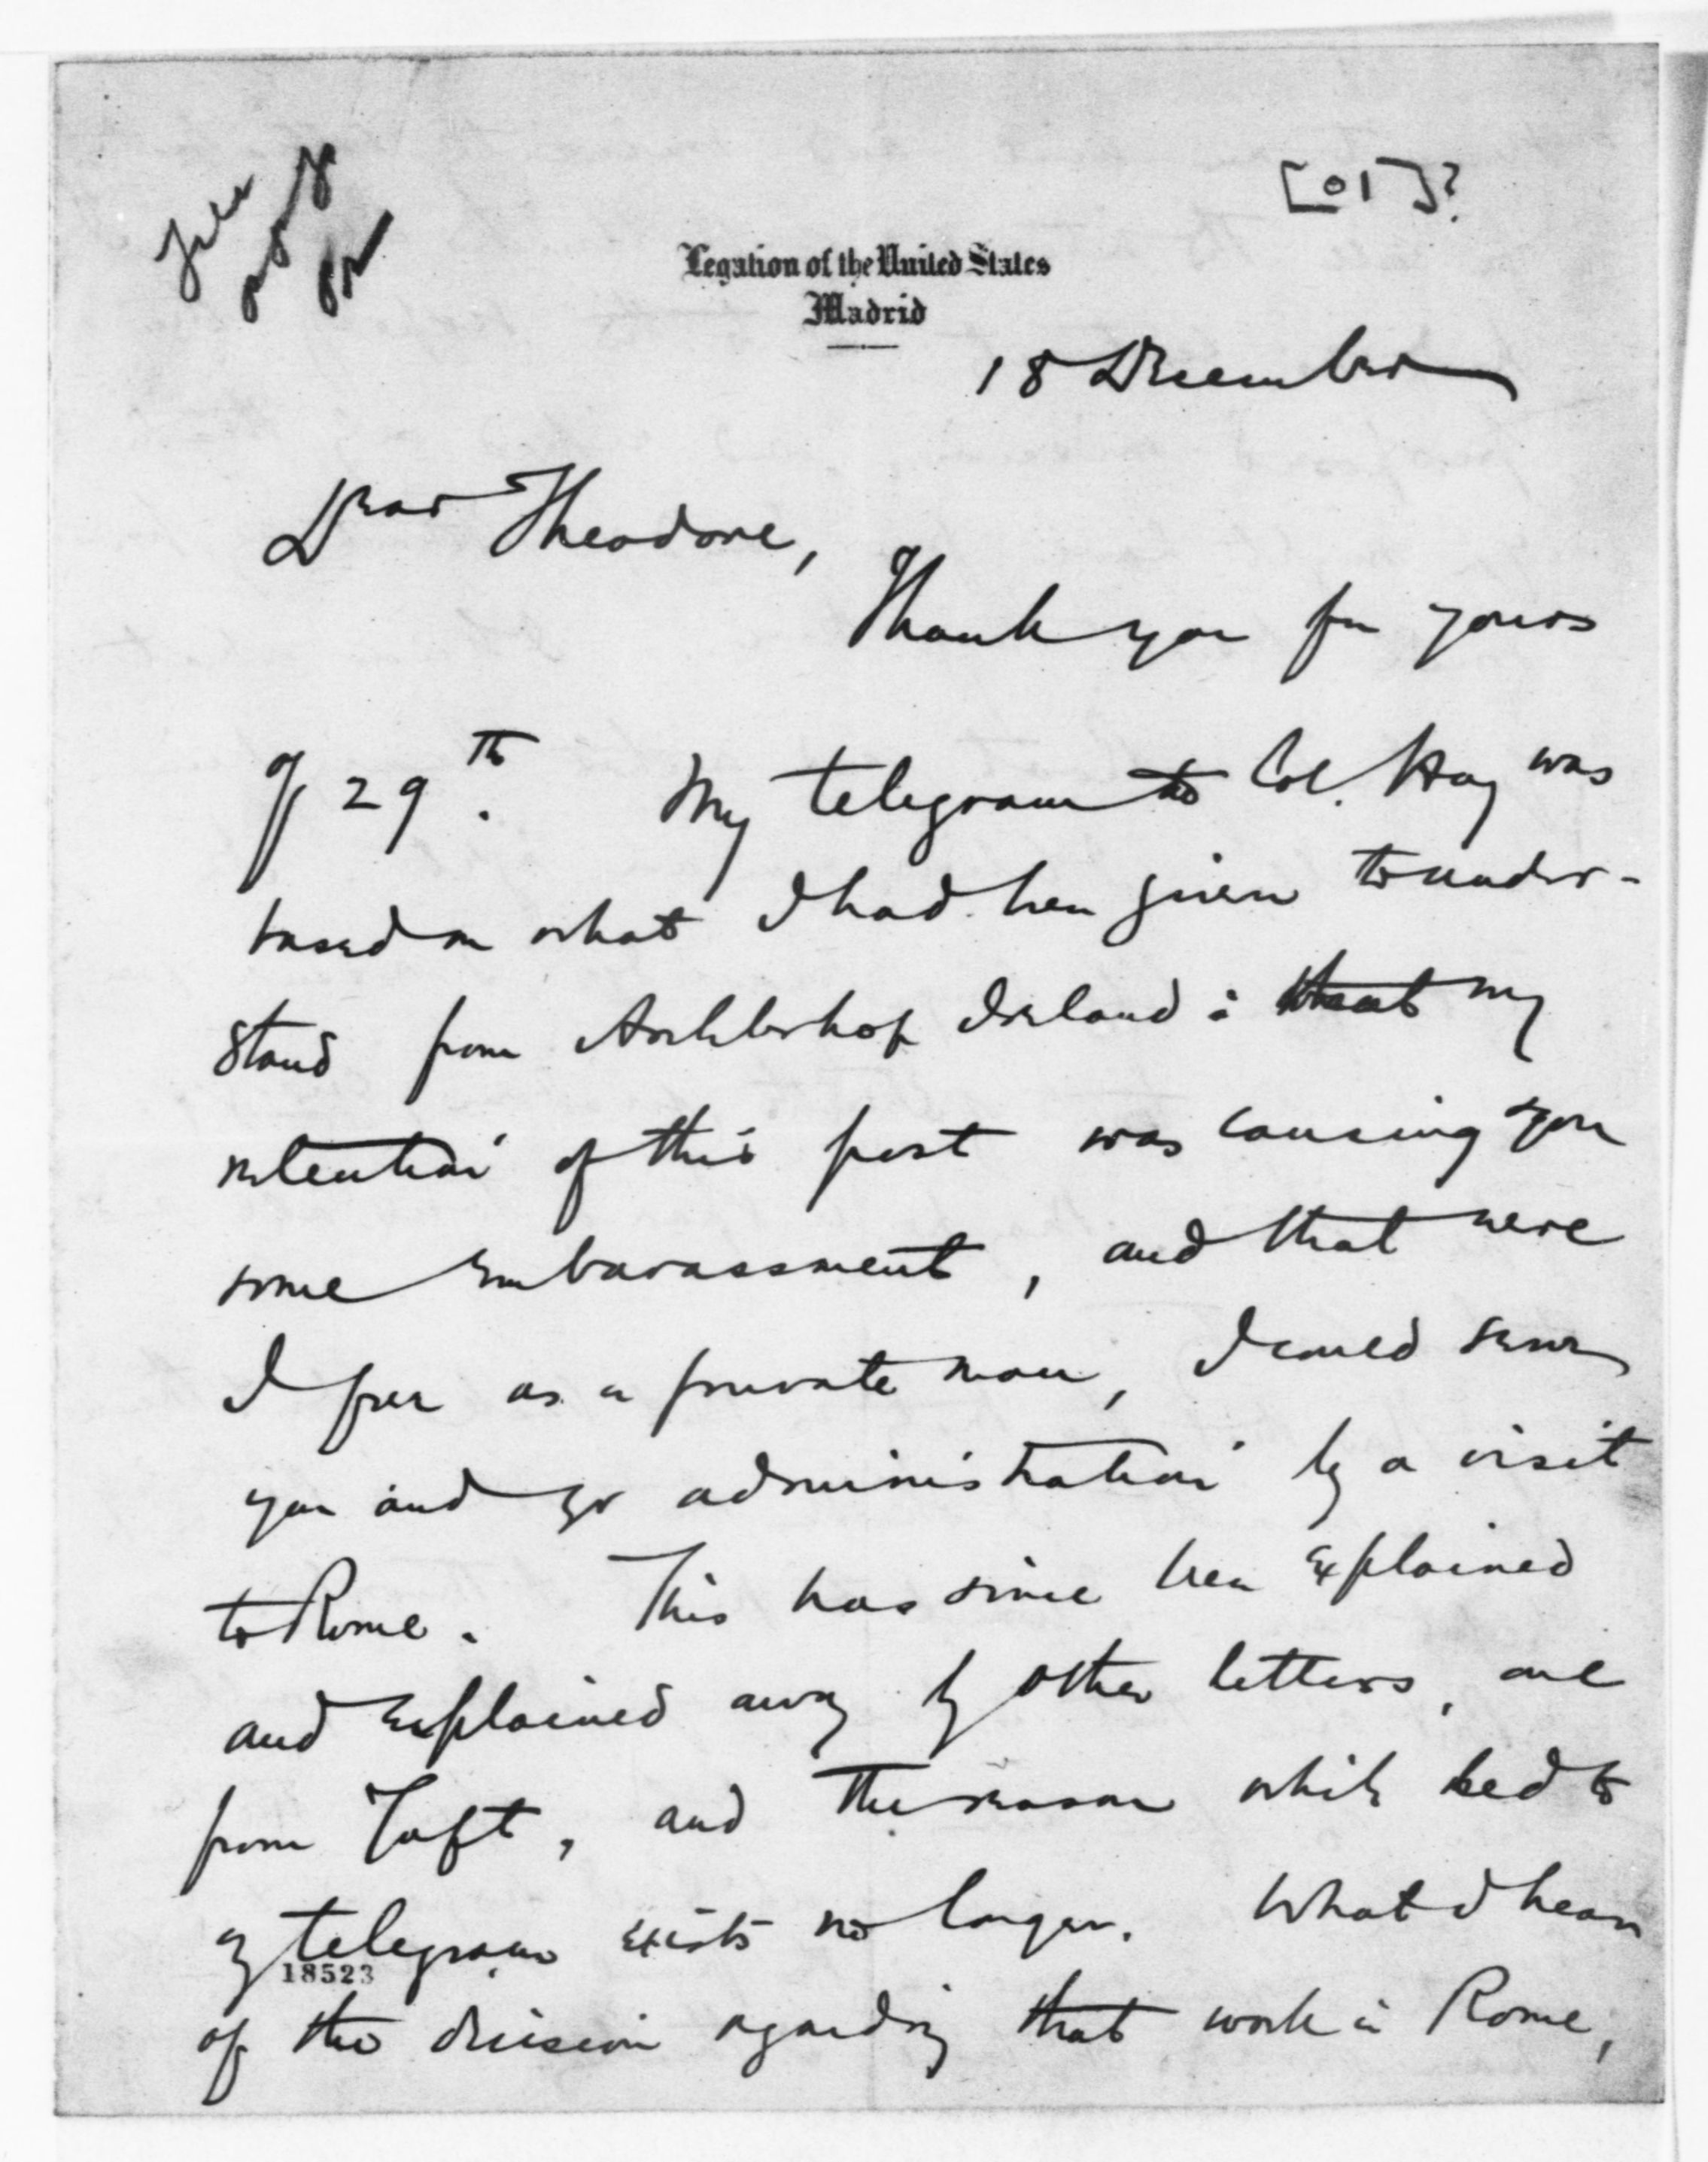 File
ppf
[01]?
Legation of the United States
Madrid
18 December
Dear Theodore,
Thank you for yours
of 29th. My telegram to Col. Hay was
based on what I had been given to under-
stand from Archbishop Ireland: that my
retention of this post was causing you
some embarassment, and that were
I free as a private man, I could serve
you and yr administration by a visit
to Rome. This has since been explained
and explained away by other letters, one
from Taft, and the reason which led to
my telegram exists no longer. What I hear
18523
of the decision regarding that work in Rome,